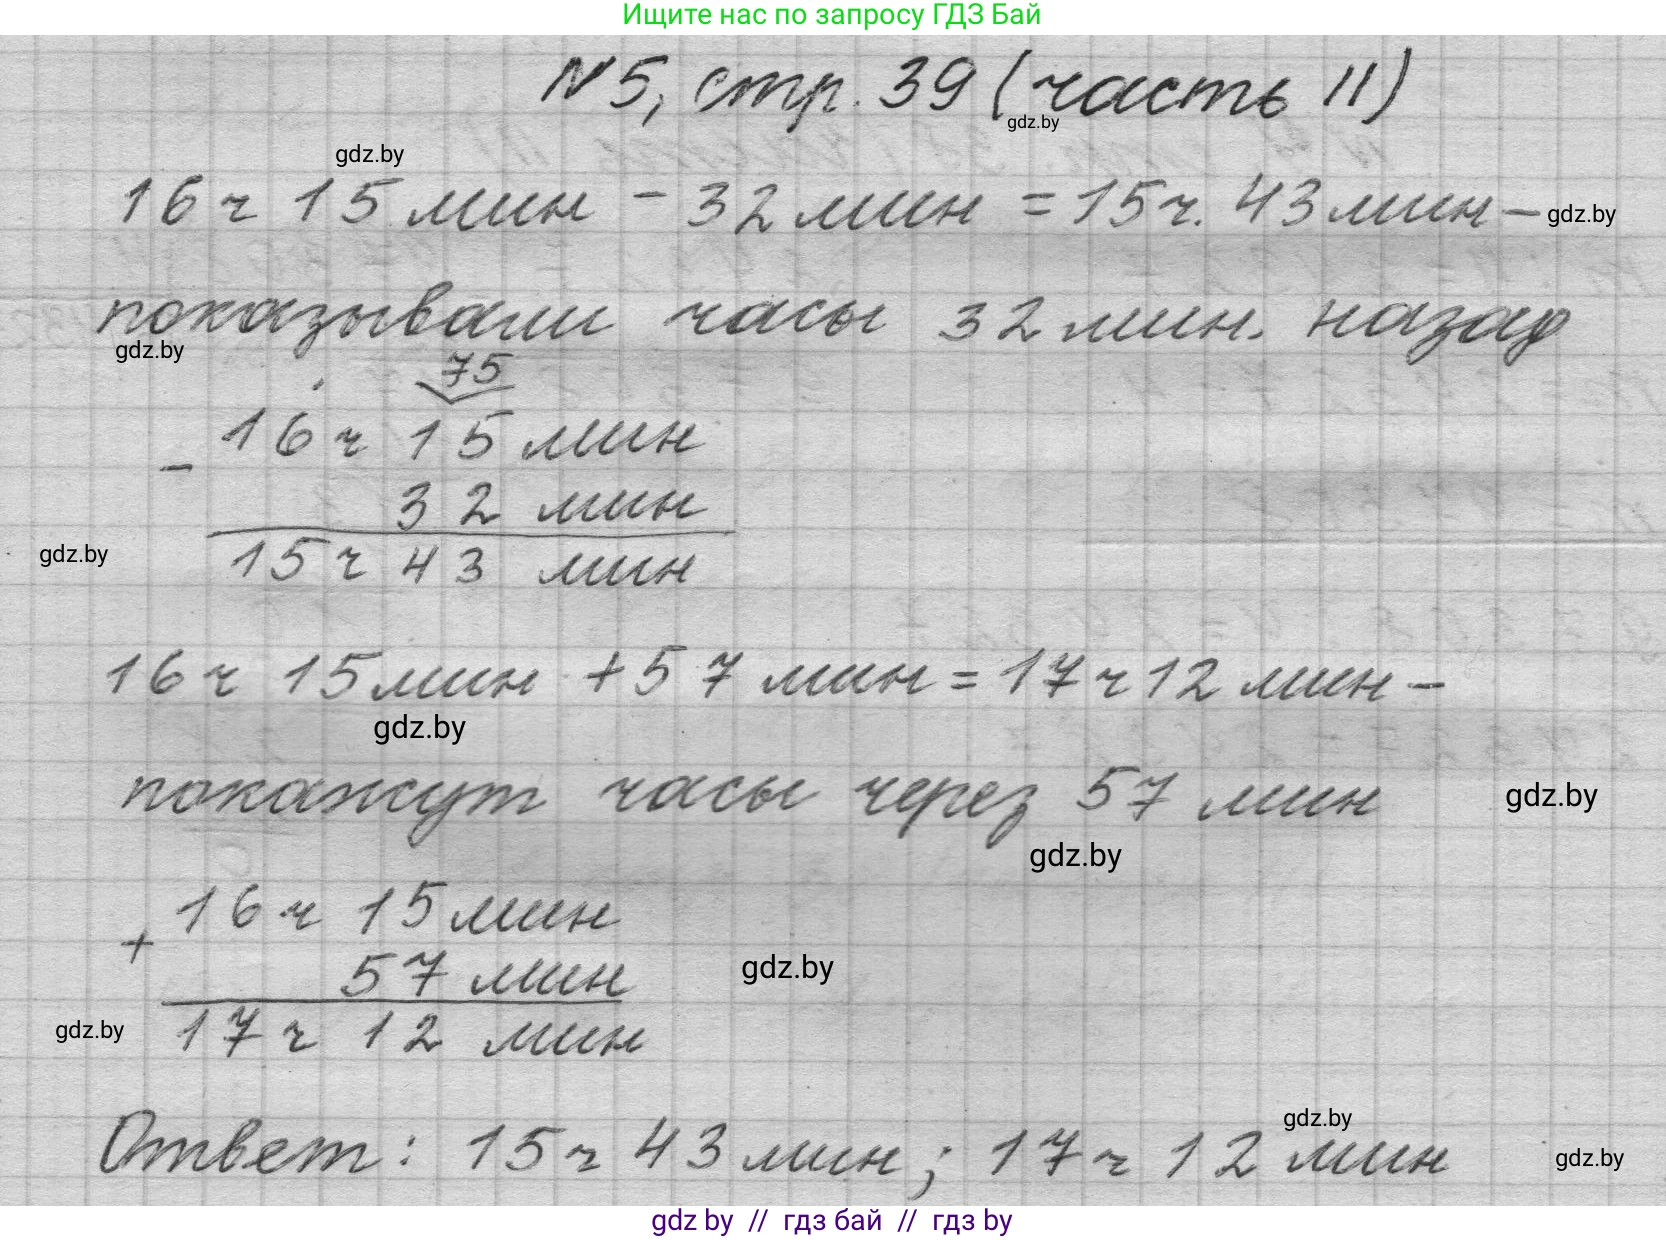 Ищите нас по запросу ГДЗ Бай
N5, стр. 39 (часть II)
gdz.by
gdz.by
16 ч 15 мин - 32 мин = 15 ч. 43 мин -
gdz.by
показывали часы 32 мин. назад
gdz.by
75
16 ч 15 мин
-
32 мин
15 ч 43 мин
gdz.by
16 ч 15 мин + 57 мин = 17 ч 12 мин -
gdz.by
покажут часы через 57 мин
gdz.by
gdz.by
16 ч 15 мин
+
57 мин
gdz.by
17 ч 12 мин
gdz.by
gdz.by
Ответ: 15 ч 43 мин; 17 ч 12 мин
gdz.by
gdz by // гдз бай // gdz by